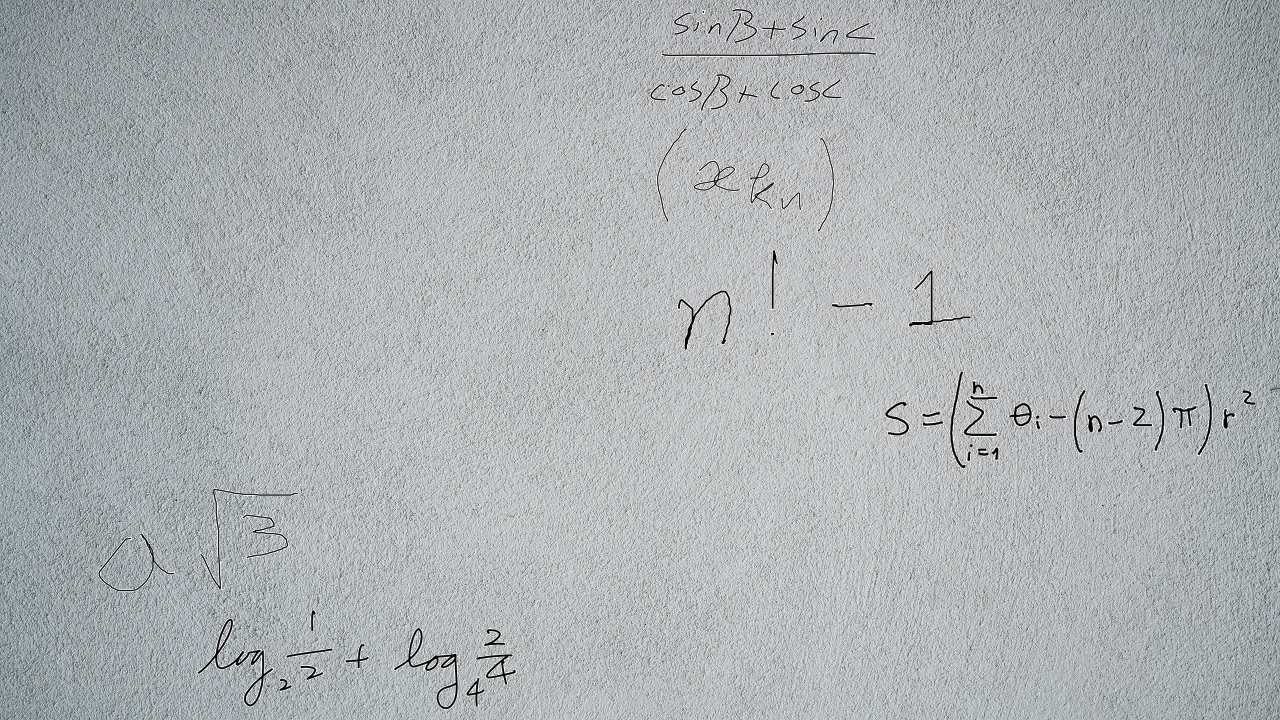 \frac{\sin B + \sin C}{\cos B + \cos C}
(x_{k_n})
n! - 1
S = \left( \sum_{i=1}^{n} \theta_i - (n-2)\pi \right) r^2
a\sqrt{3}
\log_2 \frac{1}{2} + \log_4 \frac{2}{4}